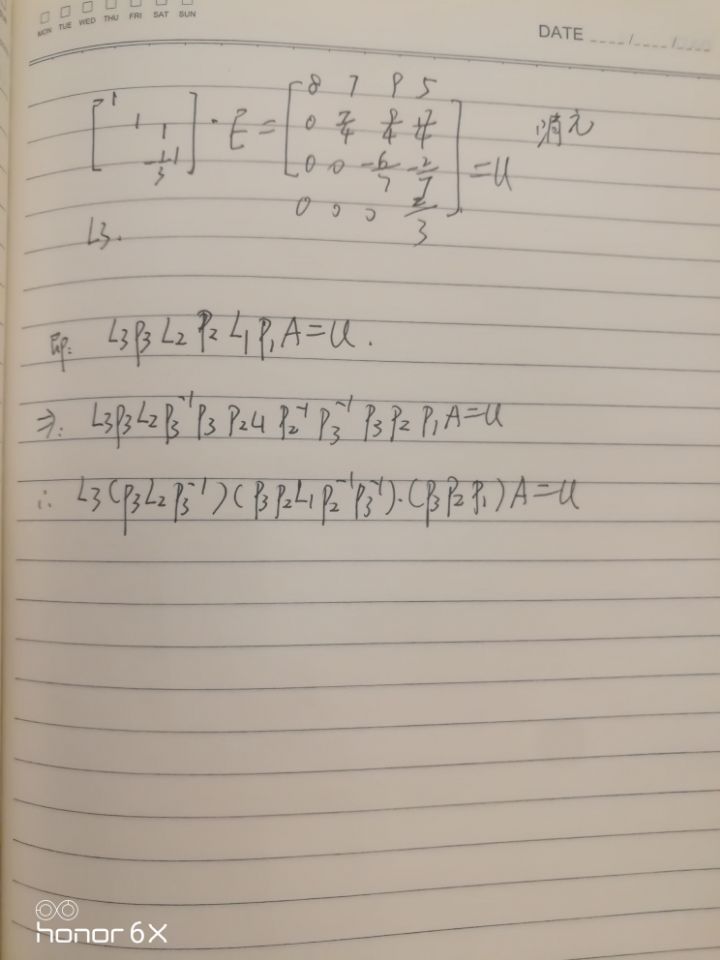 MON TUE WED THU FRI SAT SUN
DATE
[1 1 1 -1/3 1] · E = [8 7 9 5
0 7/4 9/4 17/4
0 0 -6/7 -2/7
0 0 0 2/3] = U 消元
L3.
即: L3P3L2P2L1P1A=U.
⇒: L3P3L2P3⁻¹P3P2L1P2⁻¹P3⁻¹P3P2P1A=U
∴ L3(P3L2P3⁻¹)(P3P2L1P2⁻¹P3⁻¹)·(P3P2P1)A=U
honor 6X